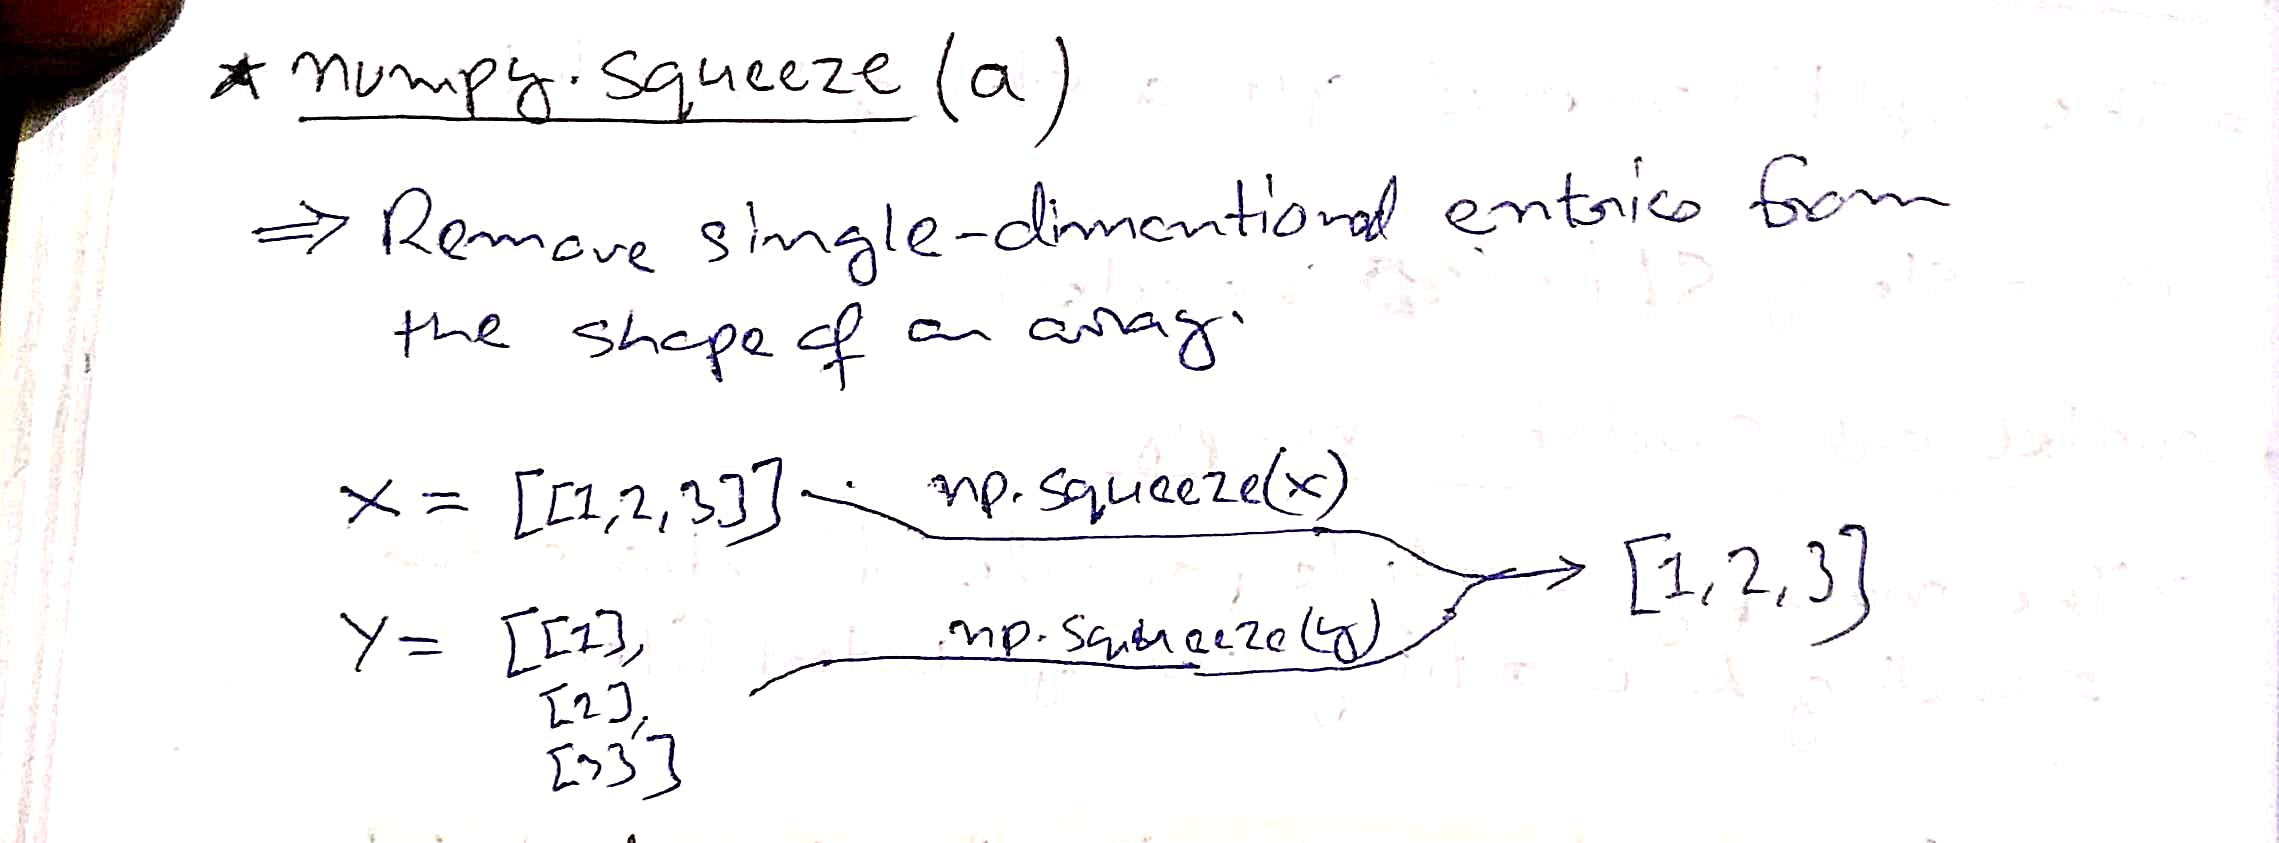 * numpy.squeeze (a)
⇒ Remove single-dimentional entries from
the shape of an array.
X = [[1,2,3]] np.squeeze(x)
→ [1,2,3]
Y = [[1], np.squeeze(y)
[2],
[3]]